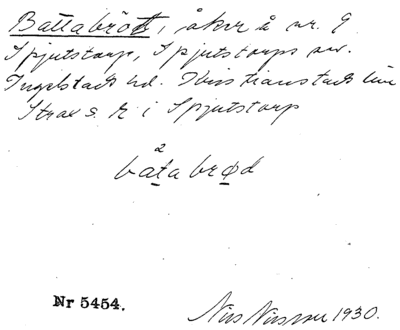 Battabrött, åker å nr. 9
Spjutstorp, Spjutstorps sn.
Ingelstads hd. Kristianstads län
Strax s. k i Spjutstorp
2
bata brød
Nr 5454.
Nils Nilsson 1930.